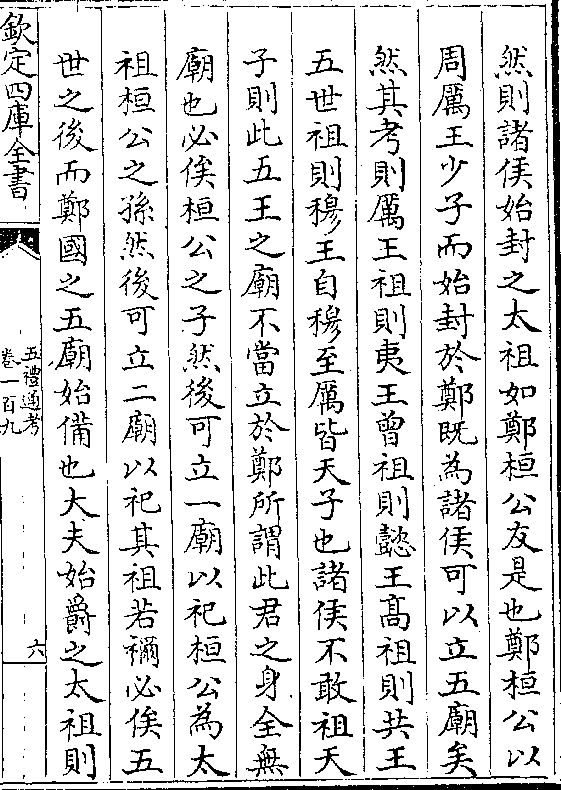 然則諸侯始封之太祖如鄭桓公友是也鄭桓公以
周厲王少子而始封於鄭既為諸侯可以立五廟矣
然其考則厲王祖則夷王曾祖則懿王髙祖則共王
五世祖則穆王自穆至厲皆天子也諸侯不敢祖天
子則此五王之廟不當立於鄭所謂此君之身全無
廟也必俟桓公之子然後可立一廟以祀桓公為太
祖桓公之孫然後可立二廟以祀其祖若禰必俟五
世之後而鄭國之五廟始備也大夫始爵之太祖則
欽定四庫全書
五禮通考
卷一百九
六